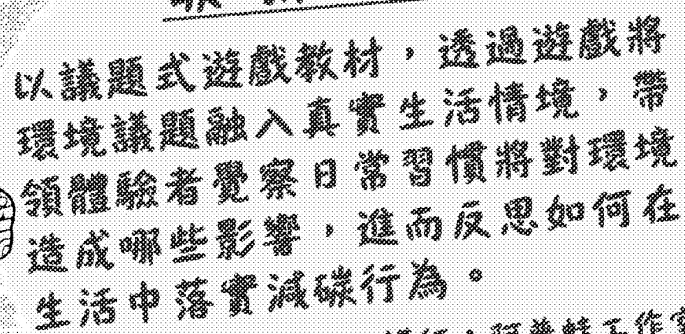 以議題式遊戲教材，透過遊戲將
環境議題融入真實生活情境，帶
領體驗者覺察日常習慣將對環境
造成哪些影響，進而反思如何在
生活中落實減碳行為。